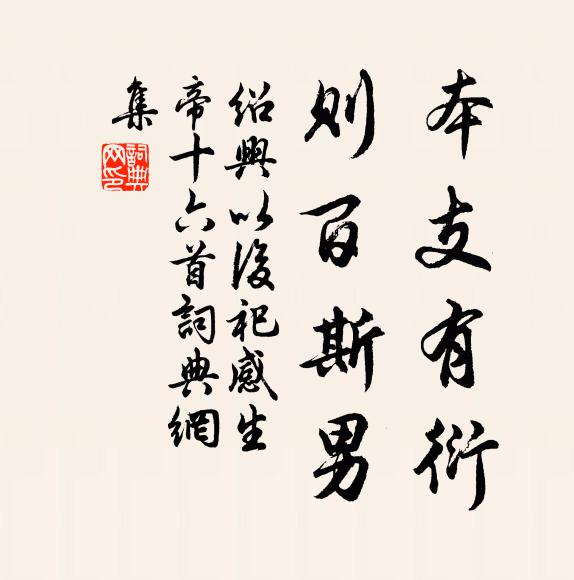 本支有衍
則百斯男
紹興以後祀感生
帝十六首詞典網
集
詞典
网印